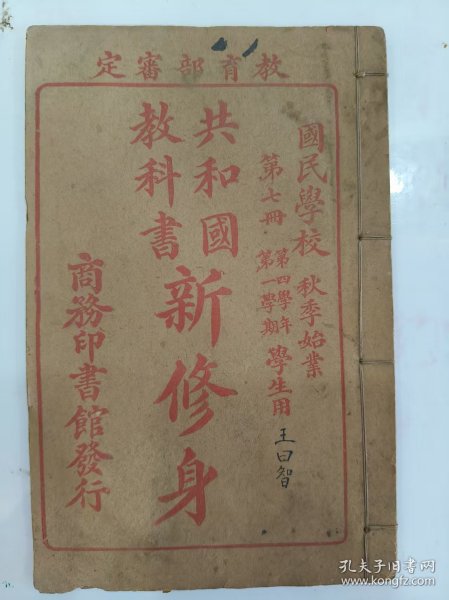 教育部審定
國民學校 秋季始業
第七冊 第四學年 第一學期 學生用
王曰智
共和國
教科書
新修身
商務印書館發行
孔夫子旧书网
www.kongfz.com